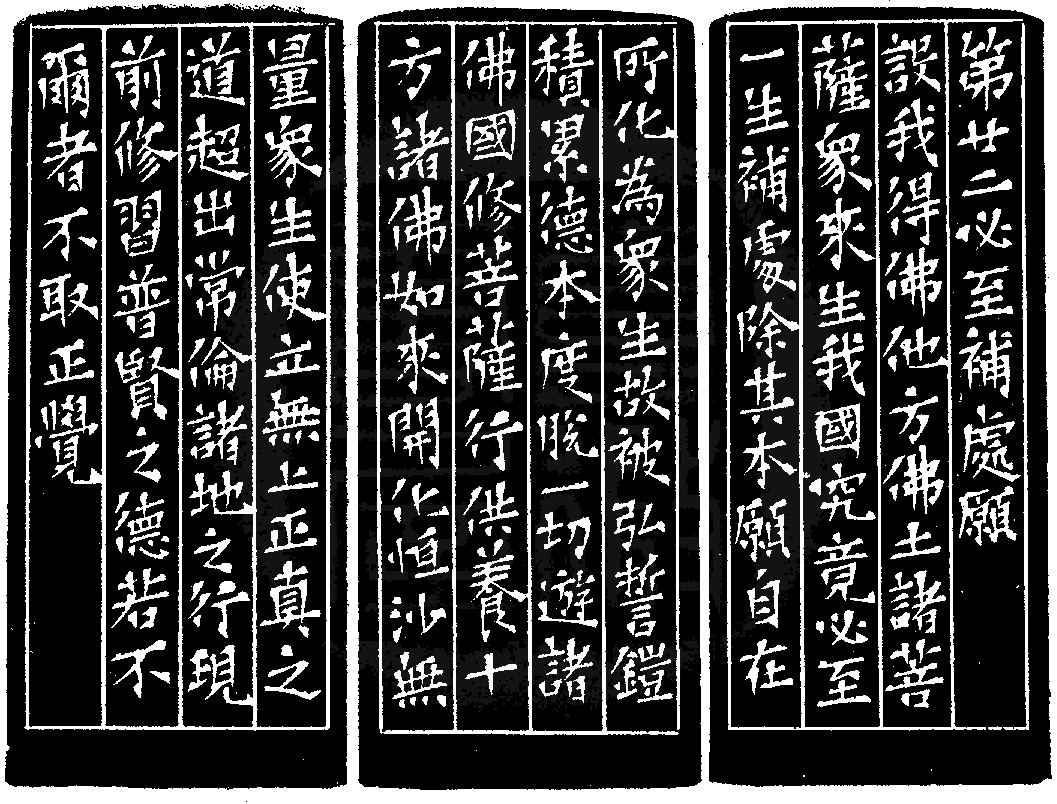 第廿二必至補處願
設我得佛他方佛土諸菩
薩衆來生我國究竟必至
一生補處除其本願自在
所化為衆生故被弘誓鎧
積累德本度脫一切遊諸
佛國修菩薩行供養十
方諸佛如來開化恒沙無
量衆生使立無上正真之
道超出常倫諸地之行現
前修習普賢之德若不
爾者不取正覺